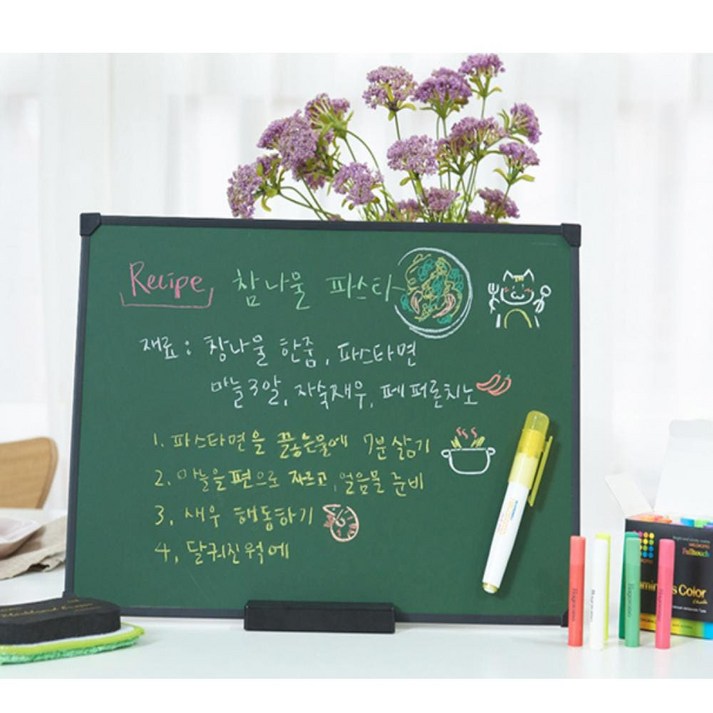 Recipe 참나물 파스타
재료 : 참나물 한줌, 파스타면
마늘3알, 자숙새우, 페퍼론치노
1. 파스타면을 끓는물에 7분 삶기
2. 마늘을 편으로 자르고, 얼음물 준비
3. 새우 해동하기
4, 달궈진 웍에